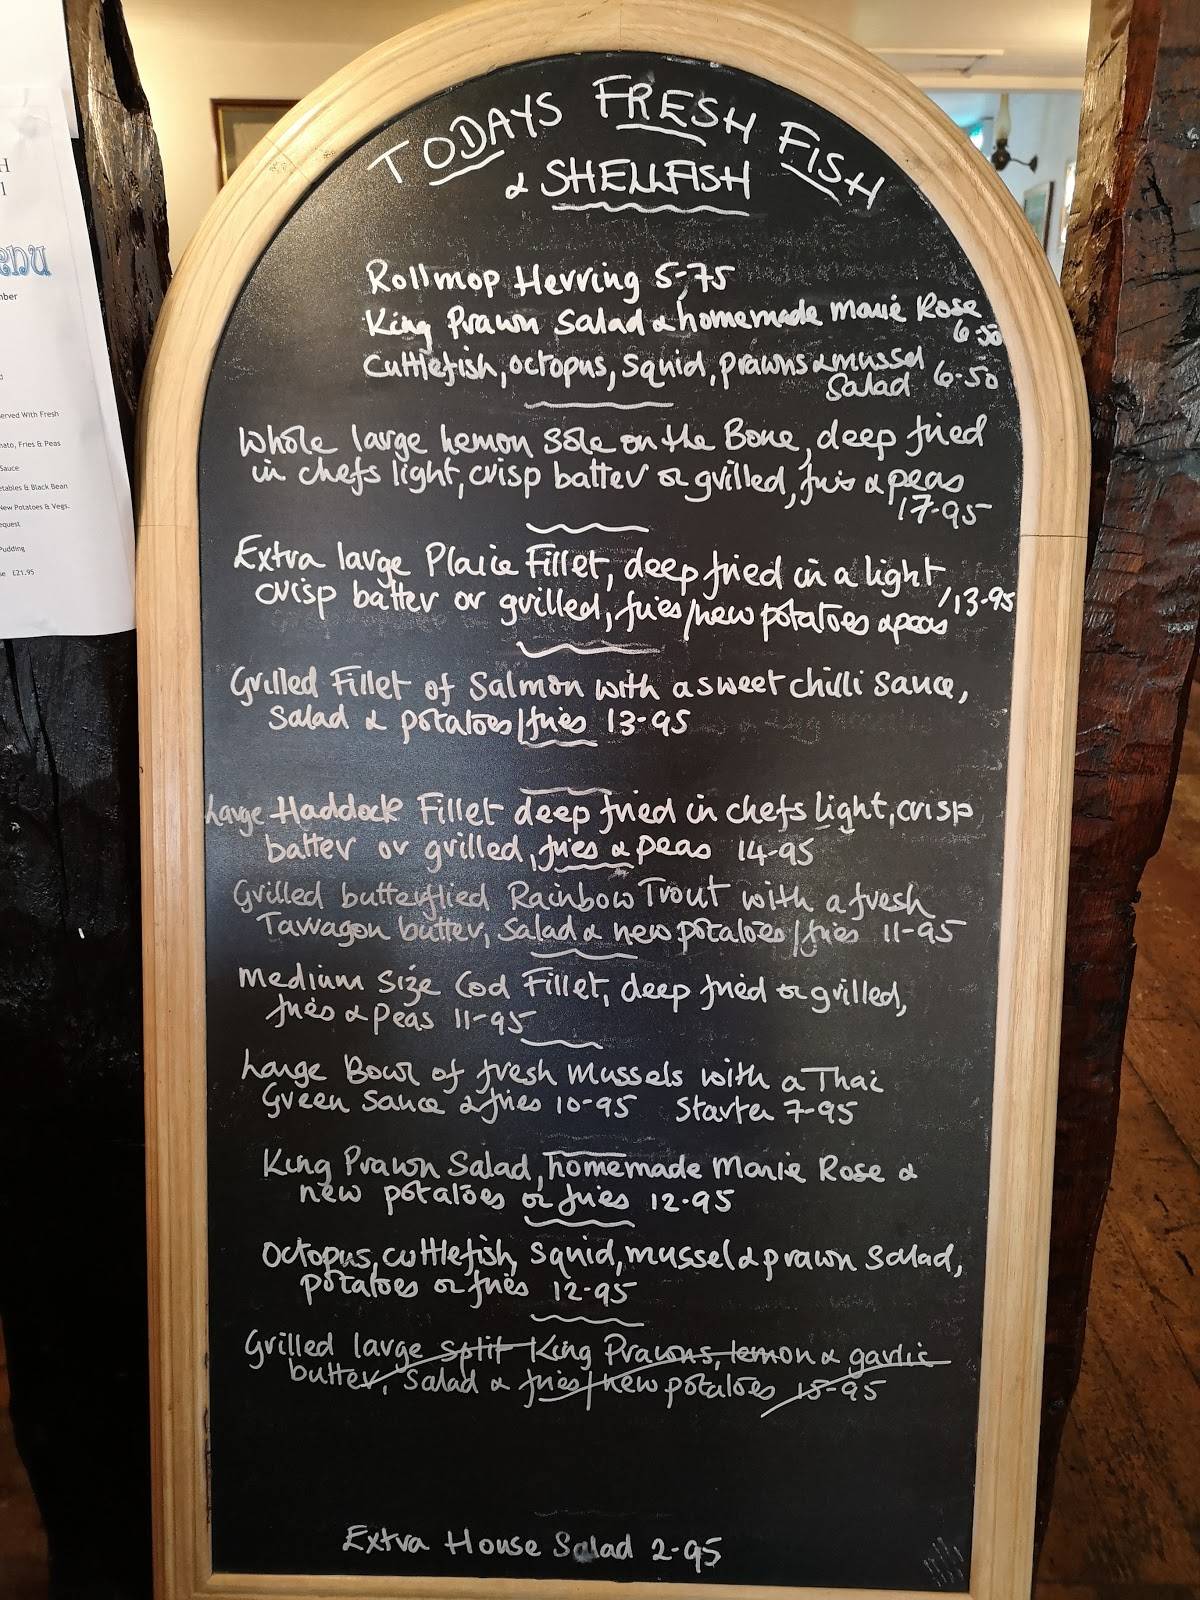 H
1
enu
mber
erved With Fresh
mato, Fries & Peas
Sauce
etables & Black Bean
New Potatoes & Vegs.
equest
Pudding
se £21.95
TODAYS FRESH FISH
& SHELLFISH
Rollmop Herring 5-75
King Prawn Salad & homemade Marie Rose
6-50
Cuttlefish, octopus, Squid, prawns & mussel
Salad 6-50
Whole large Lemon Sole on the Bone, deep fried
in chefs light, crisp batter or grilled, fries & peas
17-95
Extra large Plaice Fillet, deep fried in a light
crisp batter or grilled, fries/new potatoes & peas /13-95
Grilled Fillet of Salmon with a sweet chilli sauce,
Salad & potatoes/fries 13-95
Large Haddock Fillet deep fried in chefs light, crisp
batter or grilled, fries & peas 14-95
Grilled butterflied Rainbow Trout with a fresh
Tarragon butter, Salad & new potatoes/fries 11-95
Medium Size Cod Fillet, deep fried or grilled,
fries & Peas 11-95
Large Bowl of fresh Mussels with a Thai
Green Sauce & fries 10-95 Starter 7-95
King Prawn Salad, homemade Marie Rose &
new potatoes or fries 12-95
Octopus, cuttlefish, Squid, mussel & prawn Salad,
potatoes or fries 12-95
Grilled large split King Prawns, lemon & garlic
butter, Salad & fries/new potatoes 15-95
Extra House Salad 2-95